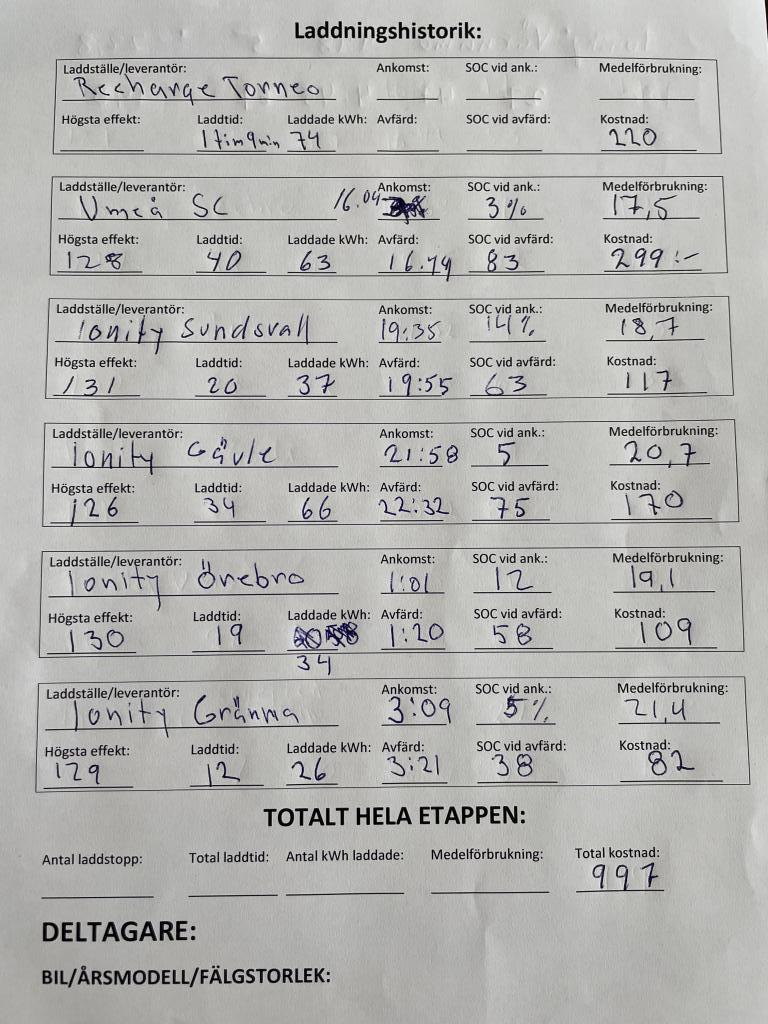 Laddningshistorik:
Laddställe/leverantör: Ankomst: SOC vid ank.: Medelförbrukning:
Recharge Torneo
Högsta effekt: Laddtid: Laddade kWh: Avfärd: SOC vid avfärd: Kostnad:
1 tim 9 min 74 220
Laddställe/leverantör: Ankomst: SOC vid ank.: Medelförbrukning:
Umeå SC 16.04 3% 17,5
Högsta effekt: Laddtid: Laddade kWh: Avfärd: SOC vid avfärd: Kostnad:
128 40 63 16.44 83 299:-
Laddställe/leverantör: Ankomst: SOC vid ank.: Medelförbrukning:
Ionity Sundsvall 19:35 14% 18,7
Högsta effekt: Laddtid: Laddade kWh: Avfärd: SOC vid avfärd: Kostnad:
131 20 37 19:55 63 117
Laddställe/leverantör: Ankomst: SOC vid ank.: Medelförbrukning:
Ionity Gävle 21:58 5 20,7
Högsta effekt: Laddtid: Laddade kWh: Avfärd: SOC vid avfärd: Kostnad:
126 34 66 22:32 75 170
Laddställe/leverantör: Ankomst: SOC vid ank.: Medelförbrukning:
Ionity Örebro 1:01 12 19,1
Högsta effekt: Laddtid: Laddade kWh: Avfärd: SOC vid avfärd: Kostnad:
130 19 1:20 58 109
34
Laddställe/leverantör: Ankomst: SOC vid ank.: Medelförbrukning:
Ionity Gränna 3:09 5% 21,4
Högsta effekt: Laddtid: Laddade kWh: Avfärd: SOC vid avfärd: Kostnad:
129 12 26 3:21 38 82
TOTALT HELA ETAPPEN:
Antal laddstopp: Total laddtid: Antal kWh laddade: Medelförbrukning: Total kostnad:
997
DELTAGARE:
BIL/ÅRSMODELL/FÄLGSTORLEK: